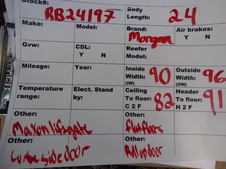 Stock#:
RB24197
Body
Length: 24
Make:
Model:
Brand:
Morgan
Air brakes?
Y N
Gvw:
CDL?
Y N
Reefer
Model:
Mileage:
Year:
Inside
Width 90
(IW)
Outside
Width 96
(OW)
Temperature
range:
Elect. Stand
by:
Ceiling
To floor: 82
C 2 F
Header
To floor 91
H 2 F
Other:
Maxon liftgate
Other:
Flat floors
Other:
Curbside door
Other:
Roll up door